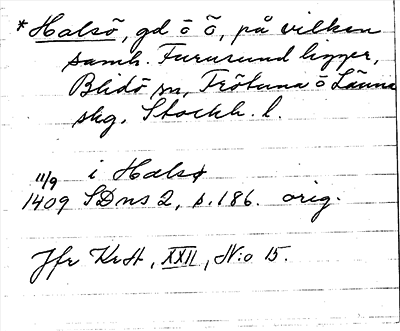 *Halsö, gd ō ö, på vilken
samh. Furusund ligger,
Blidö sn, Frötuna ō Länna
skg, Stockh. l.
11/9 i Halsø
1409 SDns 2, s. 186. orig.
Jfr KrH, XXII, N:o 15.